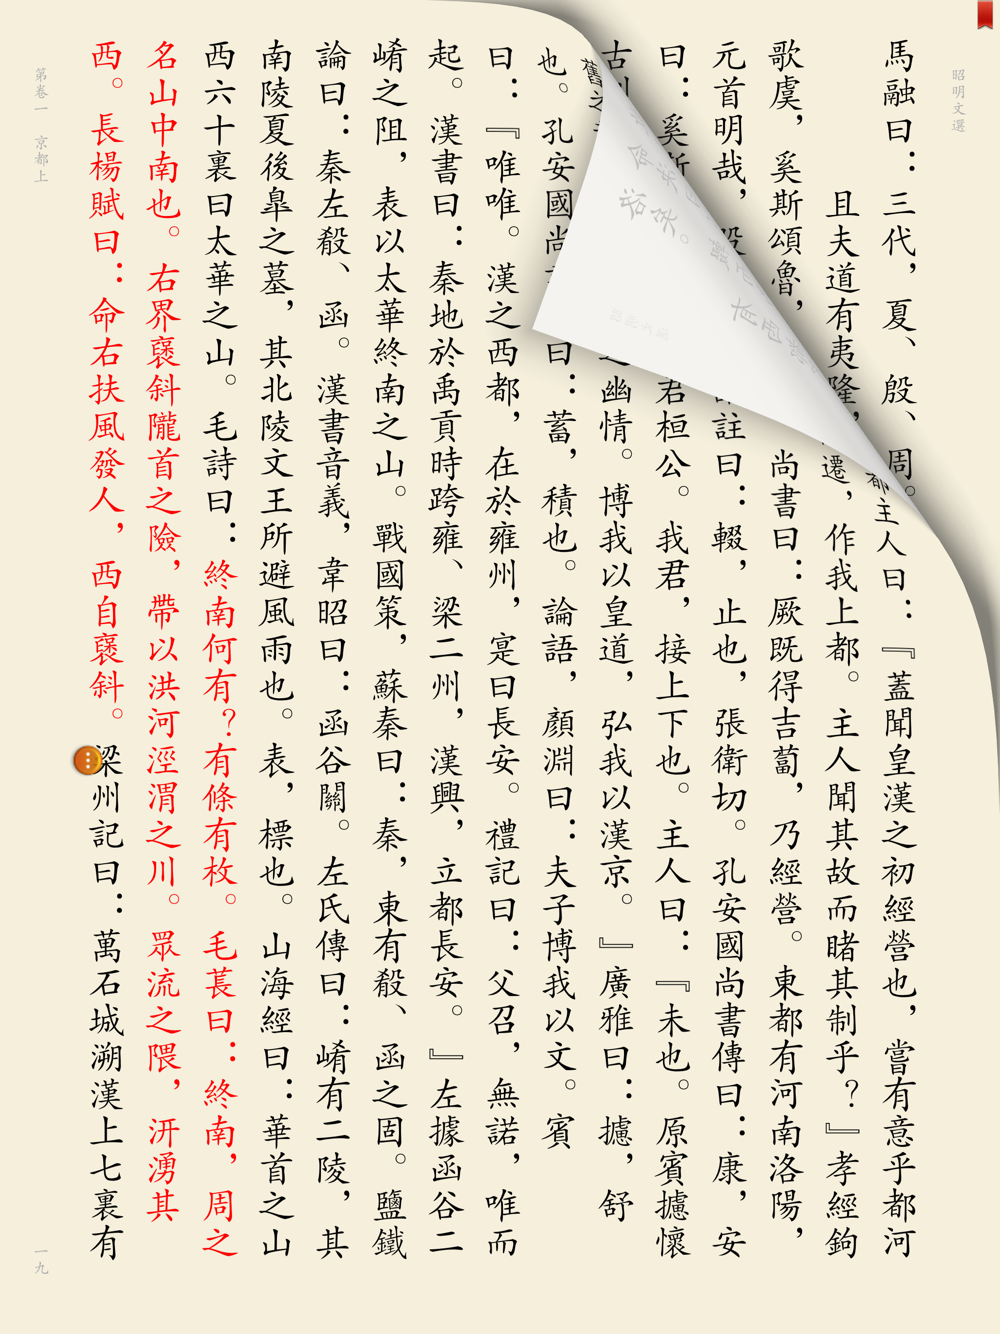 昭明文選
馬融曰：三代，夏、殷、周。都主人曰：『蓋聞皇漢之初經營也，嘗有意乎都河
且夫道有夷隆，遷，作我上都。主人聞其故而睹其制乎？』孝經鉤
歌虞，奚斯頌魯，尚書曰：厥既得吉蔔，乃經營。東都有河南洛陽，
元首明哉，註曰：輟，止也，張衛切。孔安國尚書傳曰：康，安
曰：奚斯君桓公。我君，接上下也。主人曰：『未也。原賓攄懷
古幽情。博我以皇道，弘我以漢京。』廣雅曰：攄，舒
也。孔安國尚曰：蓄，積也。論語，顏淵曰：夫子博我以文。賓
曰：『唯唯。漢之西都，在於雍州，寔曰長安。禮記曰：父召，無諾，唯而
起。漢書曰：秦地於禹貢時跨雍、梁二州，漢興，立都長安。』左據函谷二
崤之阻，表以太華終南之山。戰國策，蘇秦曰：秦，東有殽、函之固。鹽鐵
論曰：秦左殽、函。漢書音義，韋昭曰：函谷關。左氏傳曰：崤有二陵，其
南陵夏後臯之墓，其北陵文王所避風雨也。表，標也。山海經曰：華首之山
西六十裏曰太華之山。毛詩曰：終南何有？有條有枚。毛萇曰：終南，周之
名山中南也。右界褒斜隴首之險，帶以洪河涇渭之川。眾流之隈，汧湧其
西。長楊賦曰：命右扶風發人，西自褒斜。梁州記曰：萬石城溯漢上七裏有
第卷一 京都上
一九